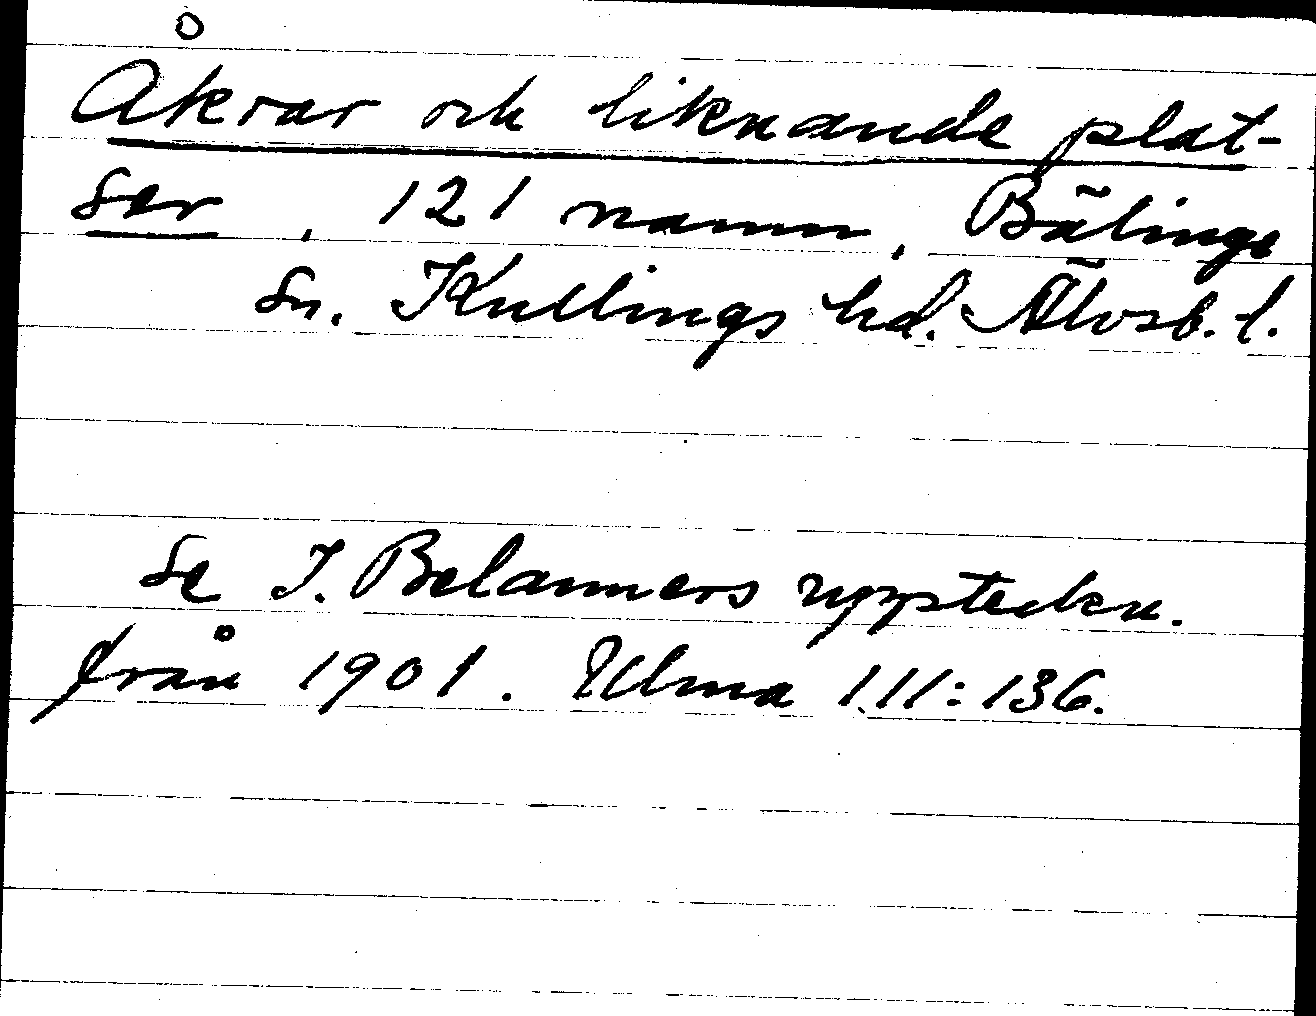 Åkrar och liknande plat-
ser, 121 namn, Bälinge
sn. Kullings hd. Älvsb. l.
Se I. Belanners uppteckn.
från 1901. Ulma 111:136.